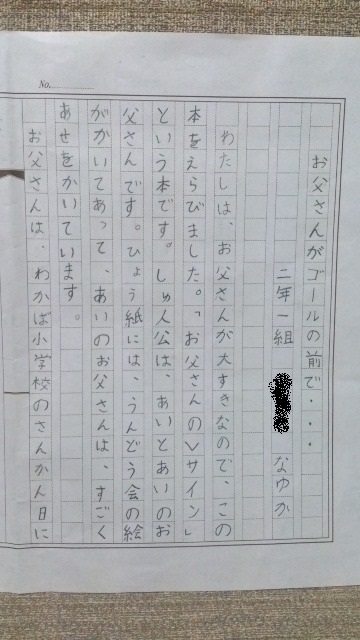 No.
お父さんがゴールの前で・・・
二年一組 なゆか
わたしは、お父さんが大すきなので、この
本をえらびました。「お父さんのVサイン」
という本です。しゅ人公は、あいとあいのお
父さんです。ひょう紙には、うんどう会の絵
がかいてあって、あいのお父さんは、すごく
あせをかいています。
お父さんは、わかば小学校のさんかん日に